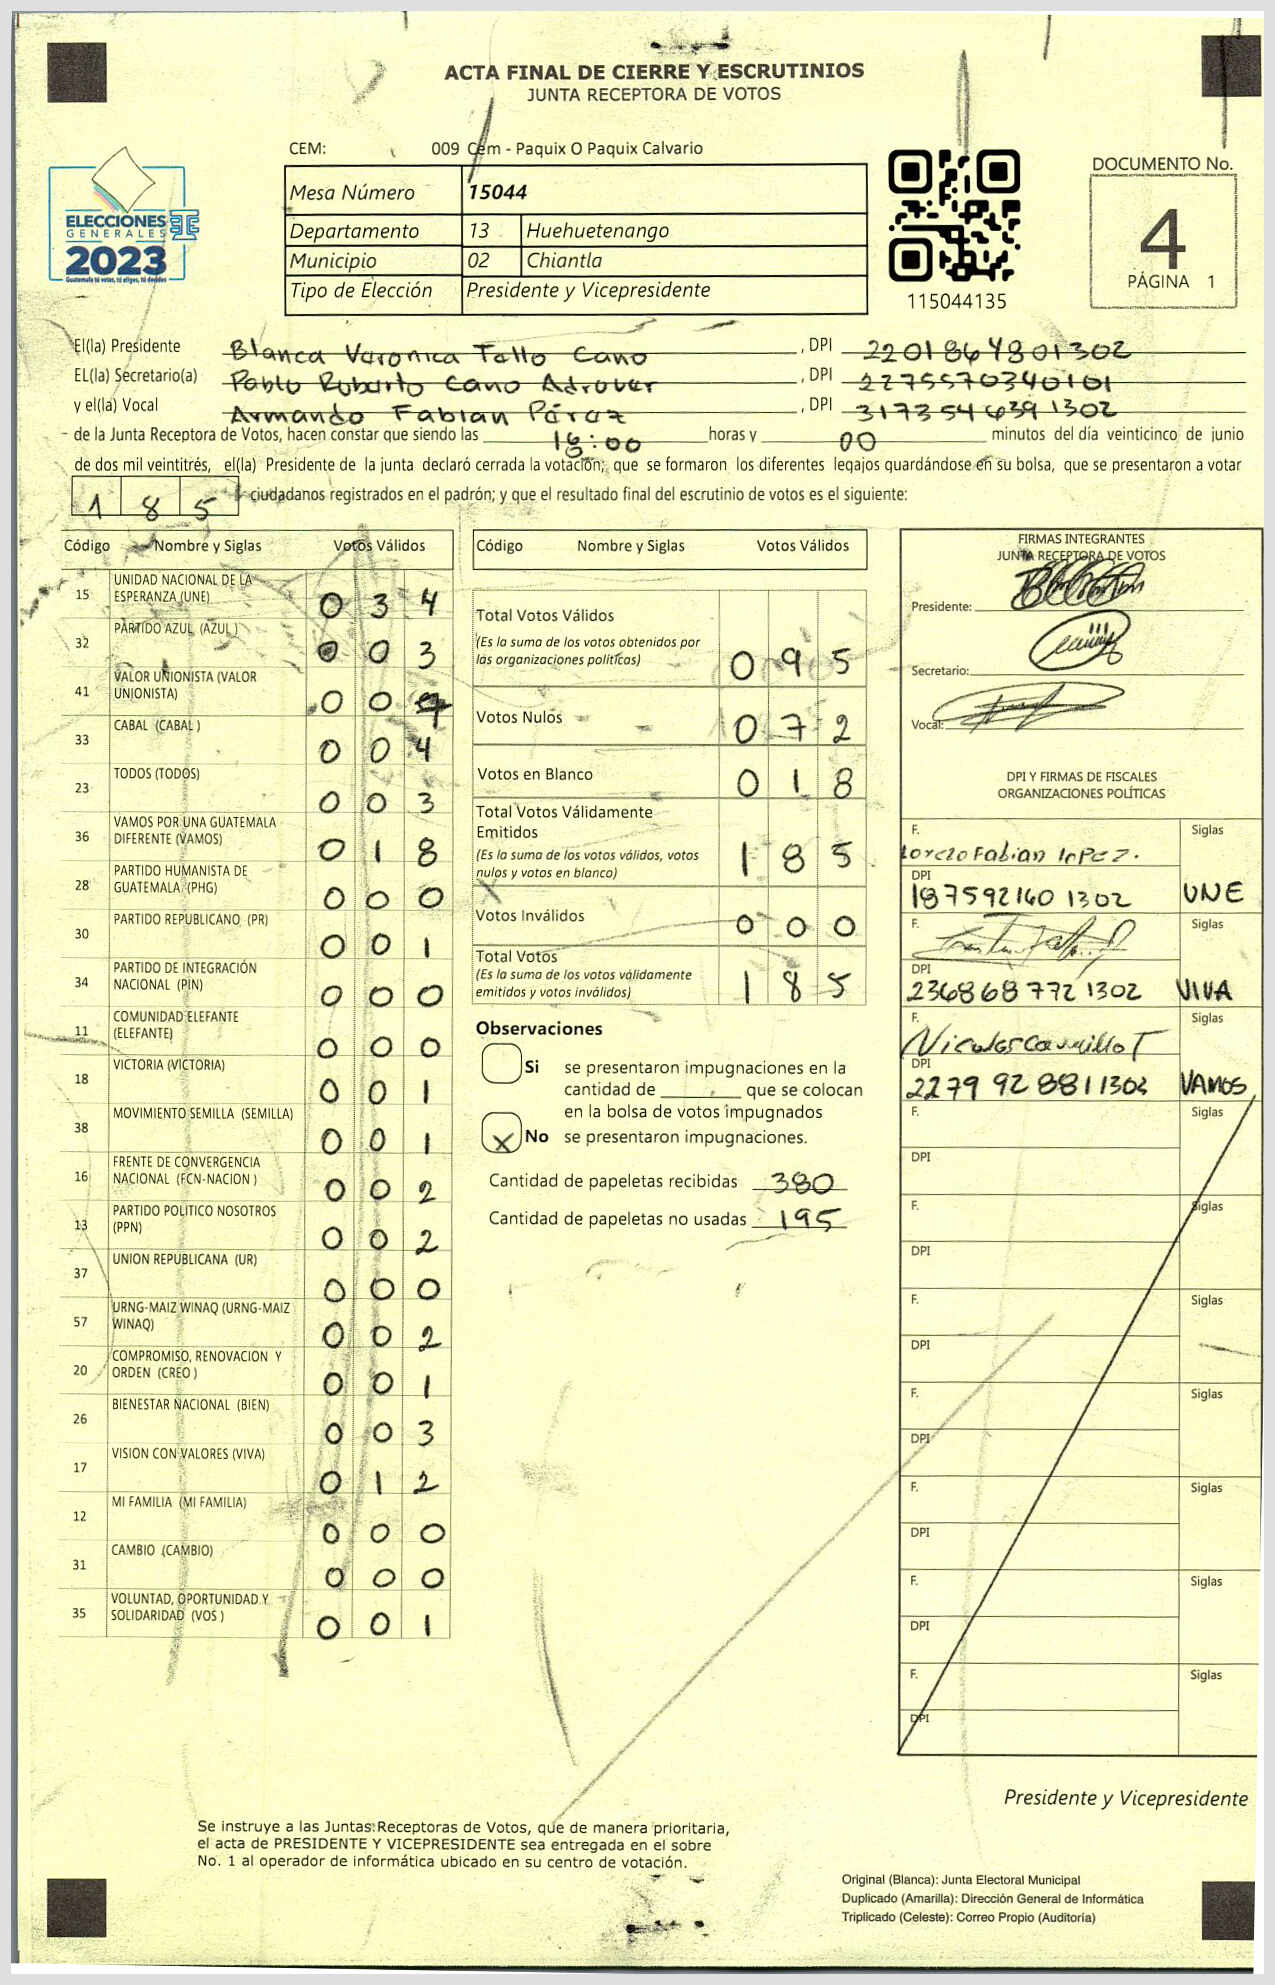 ACTA FINAL DE CIERRE Y ESCRUTINIOS
JUNTA RECEPTORA DE VOTOS
CEM: 009 Cem - Paquix O Paquix Calvario
Mesa Número 15044
Departamento 13 Huehuetenango
Municipio 02 Chiantla
Tipo de Elección Presidente y Vicepresidente
ELECCIONES
GENERALES
2023
Guatemala tú votas, tú eliges, tú decides
115044135
DOCUMENTO No.
4
PÁGINA 1
El(la) Presidente Blanca Veronica Tello Cano , DPI 2201864801302
EL(la) Secretario(a) Pablo Roberto Cano Adrover , DPI 2275570340101
y el(la) Vocal Armando Fabian Pérez , DPI 3173546391302
de la Junta Receptora de Votos, hacen constar que siendo las 18:00 horas y 00 minutos del día veinticinco de junio
de dos mil veintitrés, el(la) Presidente de la junta declaró cerrada la votación; que se formaron los diferentes legajos guardándose en su bolsa, que se presentaron a votar
1 8 5 ciudadanos registrados en el padrón; y que el resultado final del escrutinio de votos es el siguiente:
Código Nombre y Siglas Votos Válidos
15 UNIDAD NACIONAL DE LA
ESPERANZA (UNE) 0 3 4
32 PARTIDO AZUL (AZUL ) 0 0 3
41 VALOR UNIONISTA (VALOR
UNIONISTA) 0 0
33 CABAL (CABAL ) 0 0 4
23 TODOS (TODOS) 0 0 3
36 VAMOS POR UNA GUATEMALA
DIFERENTE (VAMOS) 0 1 8
28 PARTIDO HUMANISTA DE
GUATEMALA (PHG) 0 0 0
30 PARTIDO REPUBLICANO (PR) 0 0 1
34 PARTIDO DE INTEGRACIÓN
NACIONAL (PIN) 0 0 0
11 COMUNIDAD ELEFANTE
(ELEFANTE) 0 0 0
18 VICTORIA (VICTORIA) 0 0 1
38 MOVIMIENTO SEMILLA (SEMILLA) 0 0 1
16 FRENTE DE CONVERGENCIA
NACIONAL (FCN-NACION ) 0 0 2
13 PARTIDO POLITICO NOSOTROS
(PPN) 0 0 2
37 UNION REPUBLICANA (UR) 0 0 0
57 URNG-MAIZ WINAQ (URNG-MAIZ
WINAQ) 0 0 2
20 COMPROMISO, RENOVACION Y
ORDEN (CREO ) 0 0 1
26 BIENESTAR NACIONAL (BIEN) 0 0 3
17 VISION CON VALORES (VIVA) 0 1 2
12 MI FAMILIA (MI FAMILIA) 0 0 0
31 CAMBIO (CAMBIO) 0 0 0
35 VOLUNTAD, OPORTUNIDAD Y
SOLIDARIDAD (VOS ) 0 0 1
Código Nombre y Siglas Votos Válidos
Total Votos Válidos
(Es la suma de los votos obtenidos por
las organizaciones políticas) 0 9 5
Votos Nulos 0 7 2
Votos en Blanco 0 1 8
Total Votos Válidamente
Emitidos
(Es la suma de los votos válidos, votos
nulos y votos en blanco) 1 8 5
Votos Inválidos 0 0 0
Total Votos
(Es la suma de los votos válidamente
emitidos y votos inválidos) 1 8 5
Observaciones
Si se presentaron impugnaciones en la
cantidad de ____ que se colocan
en la bolsa de votos impugnados
X No se presentaron impugnaciones.
Cantidad de papeletas recibidas 380
Cantidad de papeletas no usadas 195
FIRMAS INTEGRANTES
JUNTA RECEPTORA DE VOTOS
Presidente:
Secretario:
Vocal:
DPI Y FIRMAS DE FISCALES
ORGANIZACIONES POLÍTICAS
F. Siglas
Lorezo Fabian Lopez.
DPI
187592160 1302 UNE
F. Siglas
DPI
236868772 1302 VIVA
F. Siglas
Nicolas Carrillo T
DPI
2279 92 881 1302 VAMOS
F. Siglas
DPI
F. Siglas
DPI
F. Siglas
DPI
F. Siglas
DPI
F. Siglas
DPI
F. Siglas
DPI
F. Siglas
DPI
Presidente y Vicepresidente
Se instruye a las Juntas Receptoras de Votos, que de manera prioritaria,
el acta de PRESIDENTE Y VICEPRESIDENTE sea entregada en el sobre
No. 1 al operador de informática ubicado en su centro de votación.
Original (Blanca): Junta Electoral Municipal
Duplicado (Amarilla): Dirección General de Informática
Triplicado (Celeste): Correo Propio (Auditoría)